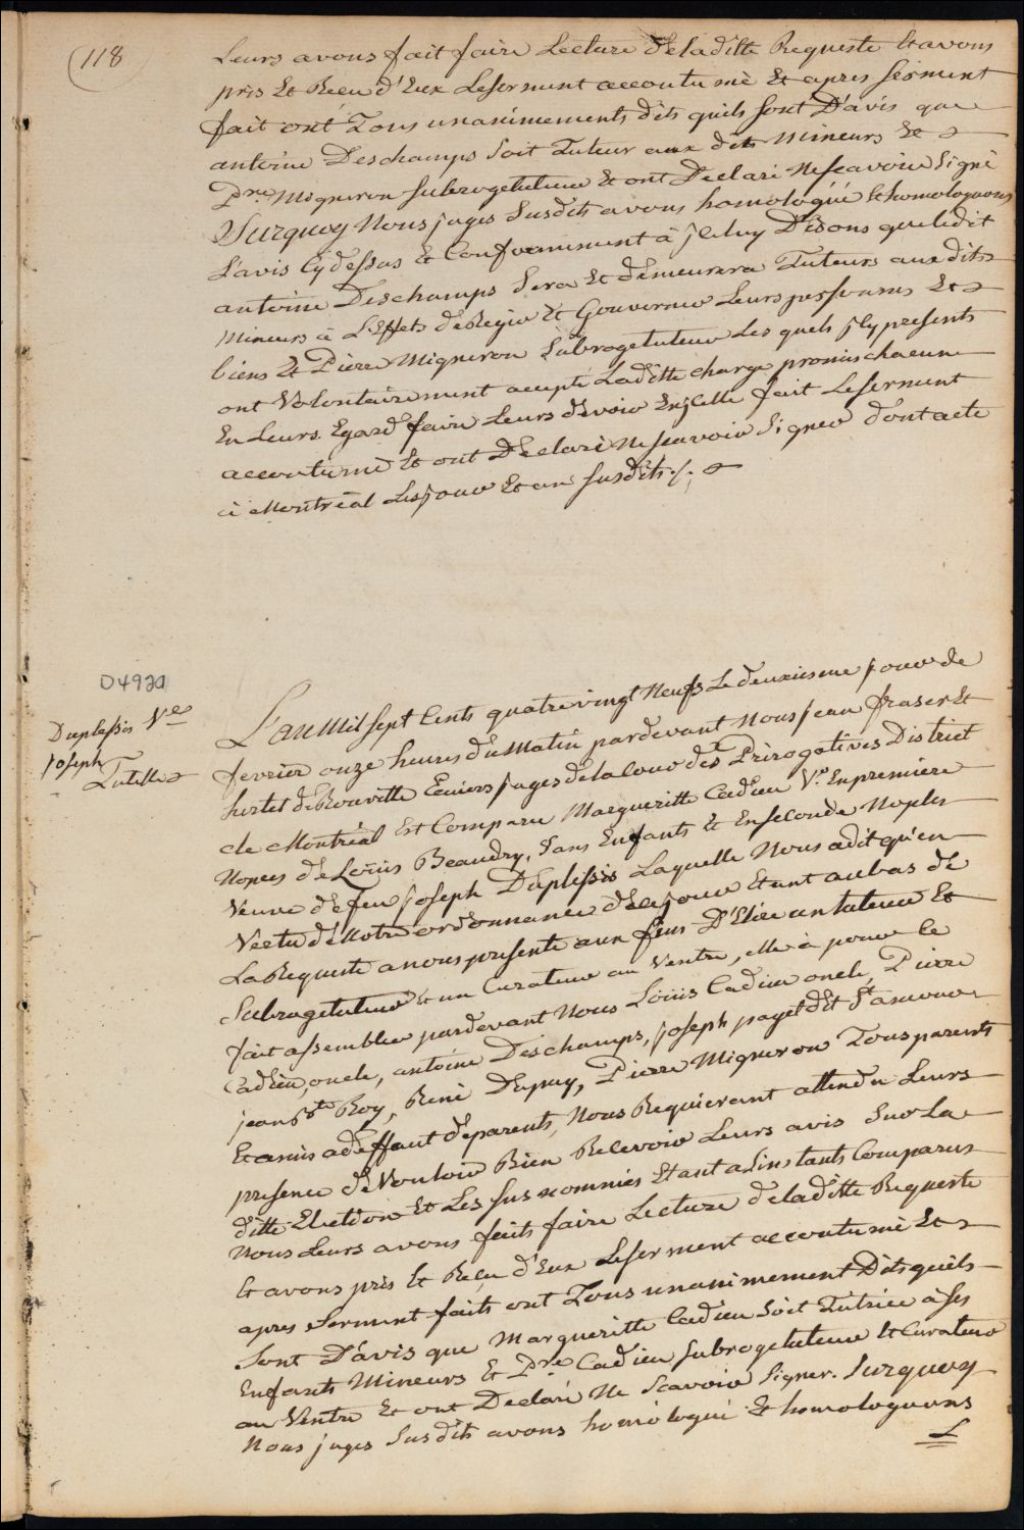 (118
Leurs avons fait faire Lecture deladitte Requeste Et avons
pris Et Recu d'Eux Leserment accoutumé Et apres serment
fait ont Tous unanimements dits quils sont D'avis que
antoine Deschamps soit Tuteur aux dits Mineurs Et
Pre. Migneron subrogetuteur Et ont Declaré Nescavoir signé
Surquoy Nous juges susdits avons homologué Et homologuons
L'avis Cydessus Et Conformement à jceluy Disons queledit
antoine Deschamps sera Et demeurera Tuteurs auxdits
Mineurs à L'Effets deRegir Et Gouverner Leurs personnes Et
biens Et Pierre Migneron Subrogetuteur Les quels jcy presents
ont Volontairement accepté Laditte charge promis chacun
En Leurs Egard faire Leurs devoir Enjcelle fait Leserment
accoutumé Et ont Declaré Nescavoir signer dont acte
à Montréal Lesjour Et an susdits ./.
04930
Duplessis Ve
joseph
Tutelle
L'an Mil sept Cents quatrevingt Neufs Le deuxieme jour de
fevrier onze heures du Matin pardevant Nous jean fraser Et
hertel deRouville Ecuiers juges dela Cour des Prérogatives District
de Montréal Est Comparu Margueritte Cadieu Ve. Enpremiere
Nopces de Loüis Beaudry, sans Enfants Et Enseconde Nopces
Veuve defeu joseph Duplessis Laquelle Nous adit qu'en
Vertu deNotre ordonnance decejour Etant aubas de
LaRequeste anous presenté aux fins D'Elire un tuteur Et
Subrogetuteur Et un Curateur au Ventre, elle à pour ce
fait assembler pardevant Nous Loüis Cadieu oncle, Pierre
Cadieu, oncle, antoine Deschamps, joseph payet dit St amour
jean Bte Roy, René Dupuy, Pierre Migneron Tous parents
Et amis adeffaut deparents, Nous Requierant attendu Leurs
presence deVouloir Bien Recevoir Leurs avis sur La
ditte Election Et Les susnommés Etant alinstants Comparus
Nous Leurs avons faits faire Lecture deladitte Requeste
Et avons pris Et Reçu d'Eux Leserment accoutumé Et
apres serment faits ont Tous unanimement Dits quils
sont D'avis que Margueritte Cadieu soit Tutrice à ses
Enfants Mineurs Et Pre Cadieu subrogetuteur Et Curateur
au Ventre Et ont Declaré Ne Scavoir signer. Surquoy
Nous juges susdits avons homologué Et homologuons
L